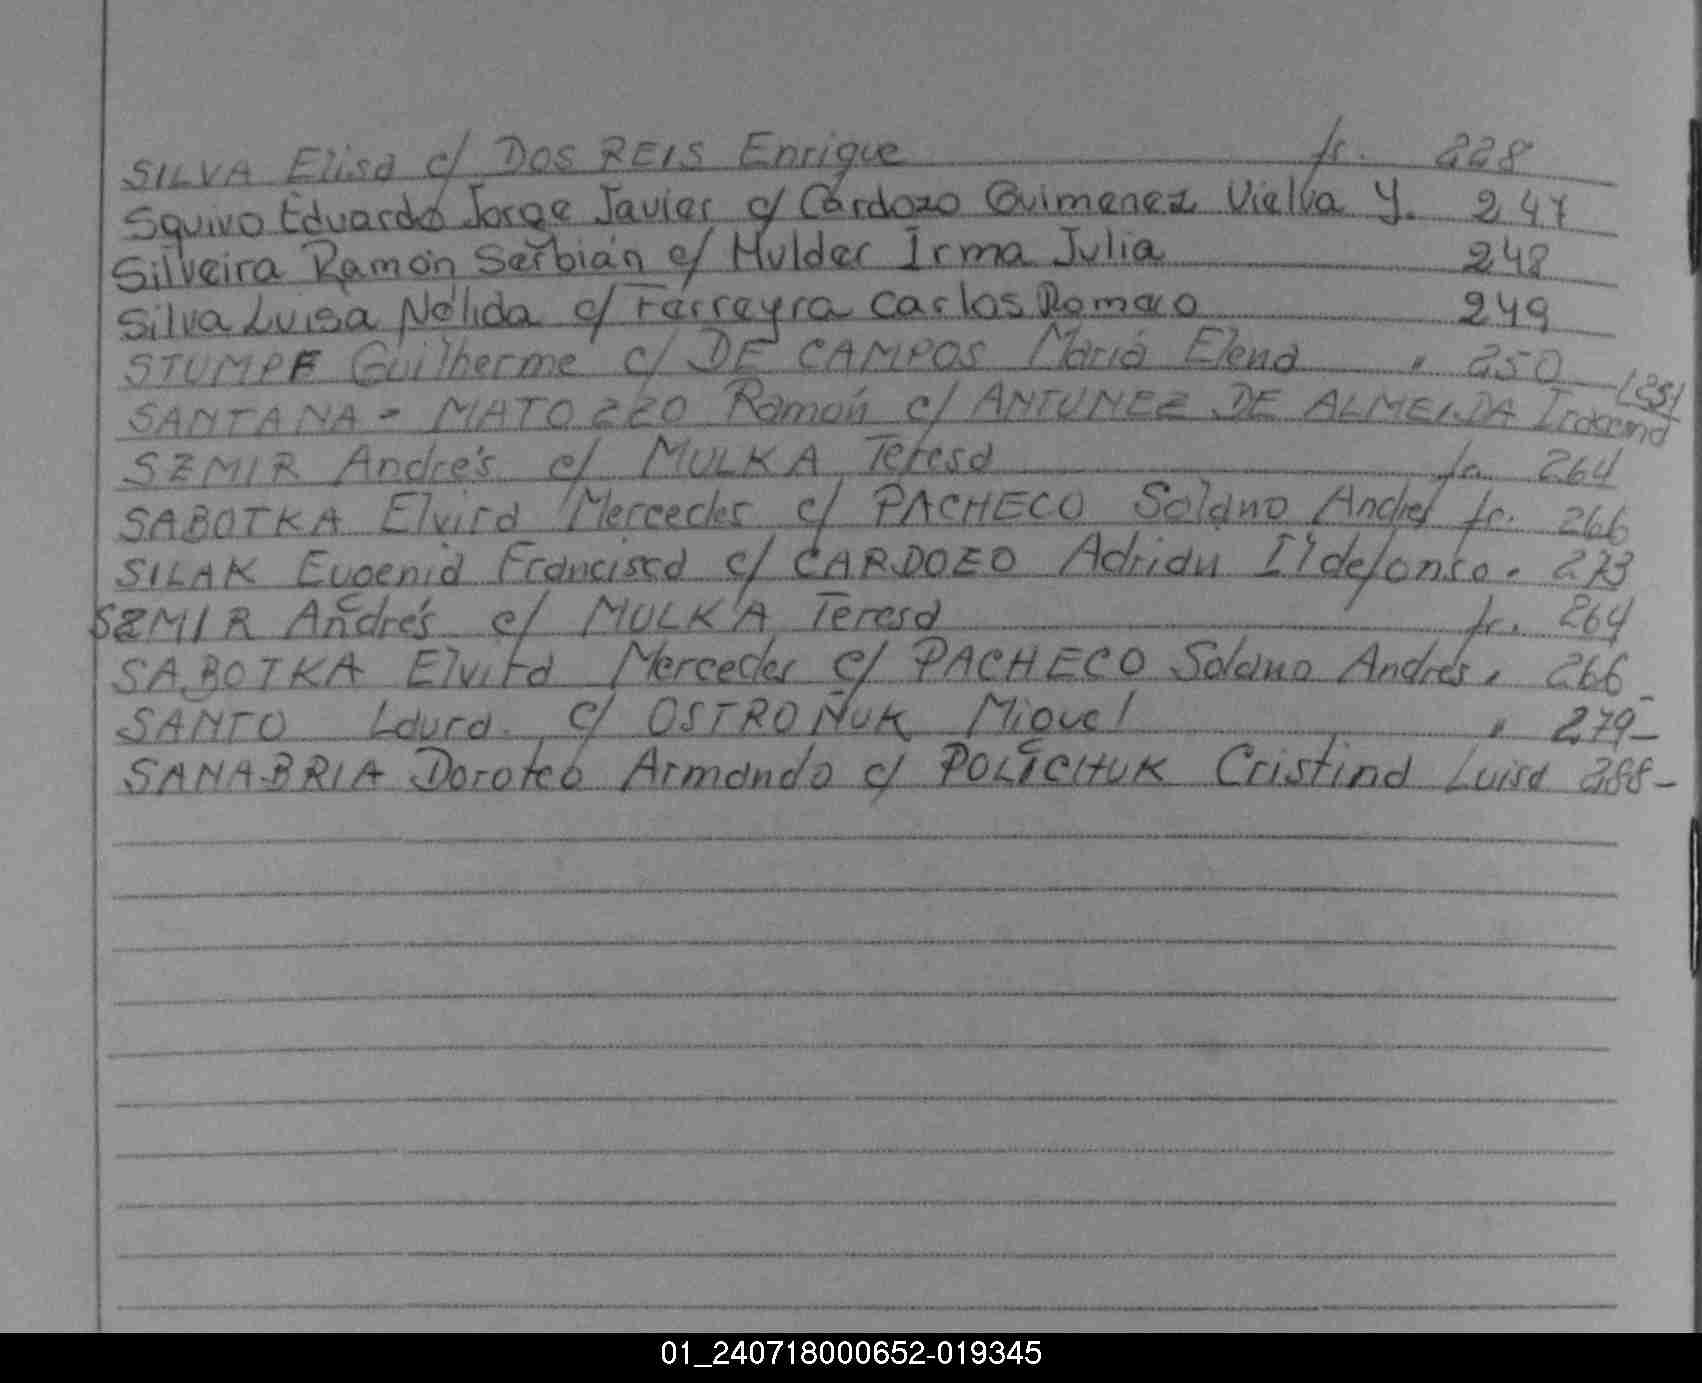 SILVA Elisa c/ DOS REIS Enrique fr. 228
Squivo Eduardo Jorge Javier c/ Cardozo Guimenez Vielva Y. 247
Silveira Ramón Serbián c/ Mulder Irma Julia 248
Silva Luisa Nélida c/ Ferreyra Carlos Romero 249
STUMPF Guilherme c/ DE CAMPOS María Elena " 250
SANTANA - MATOZZO Ramón c/ ANTUNEZ DE ALMEIDA 251
SZMIR Andrés c/ MULKA Teresa fr. 264
SABOTKA Elvira Mercedes c/ PACHECO Solano Andrés fr. 266
SILAK Eugenia Francisca c/ CARDOZO Adrián Ildefonso " 273
SZMIR Andrés c/ MULKA Teresa fr. 264
SABOTKA Elvira Mercedes c/ PACHECO Solano Andrés " 266
SANTO Laura c/ OSTROÑUK Miguel " 279-
SANABRIA Doroteo Armando c/ POLICHUK Cristina Luisa 288-
01_240718000652-019345